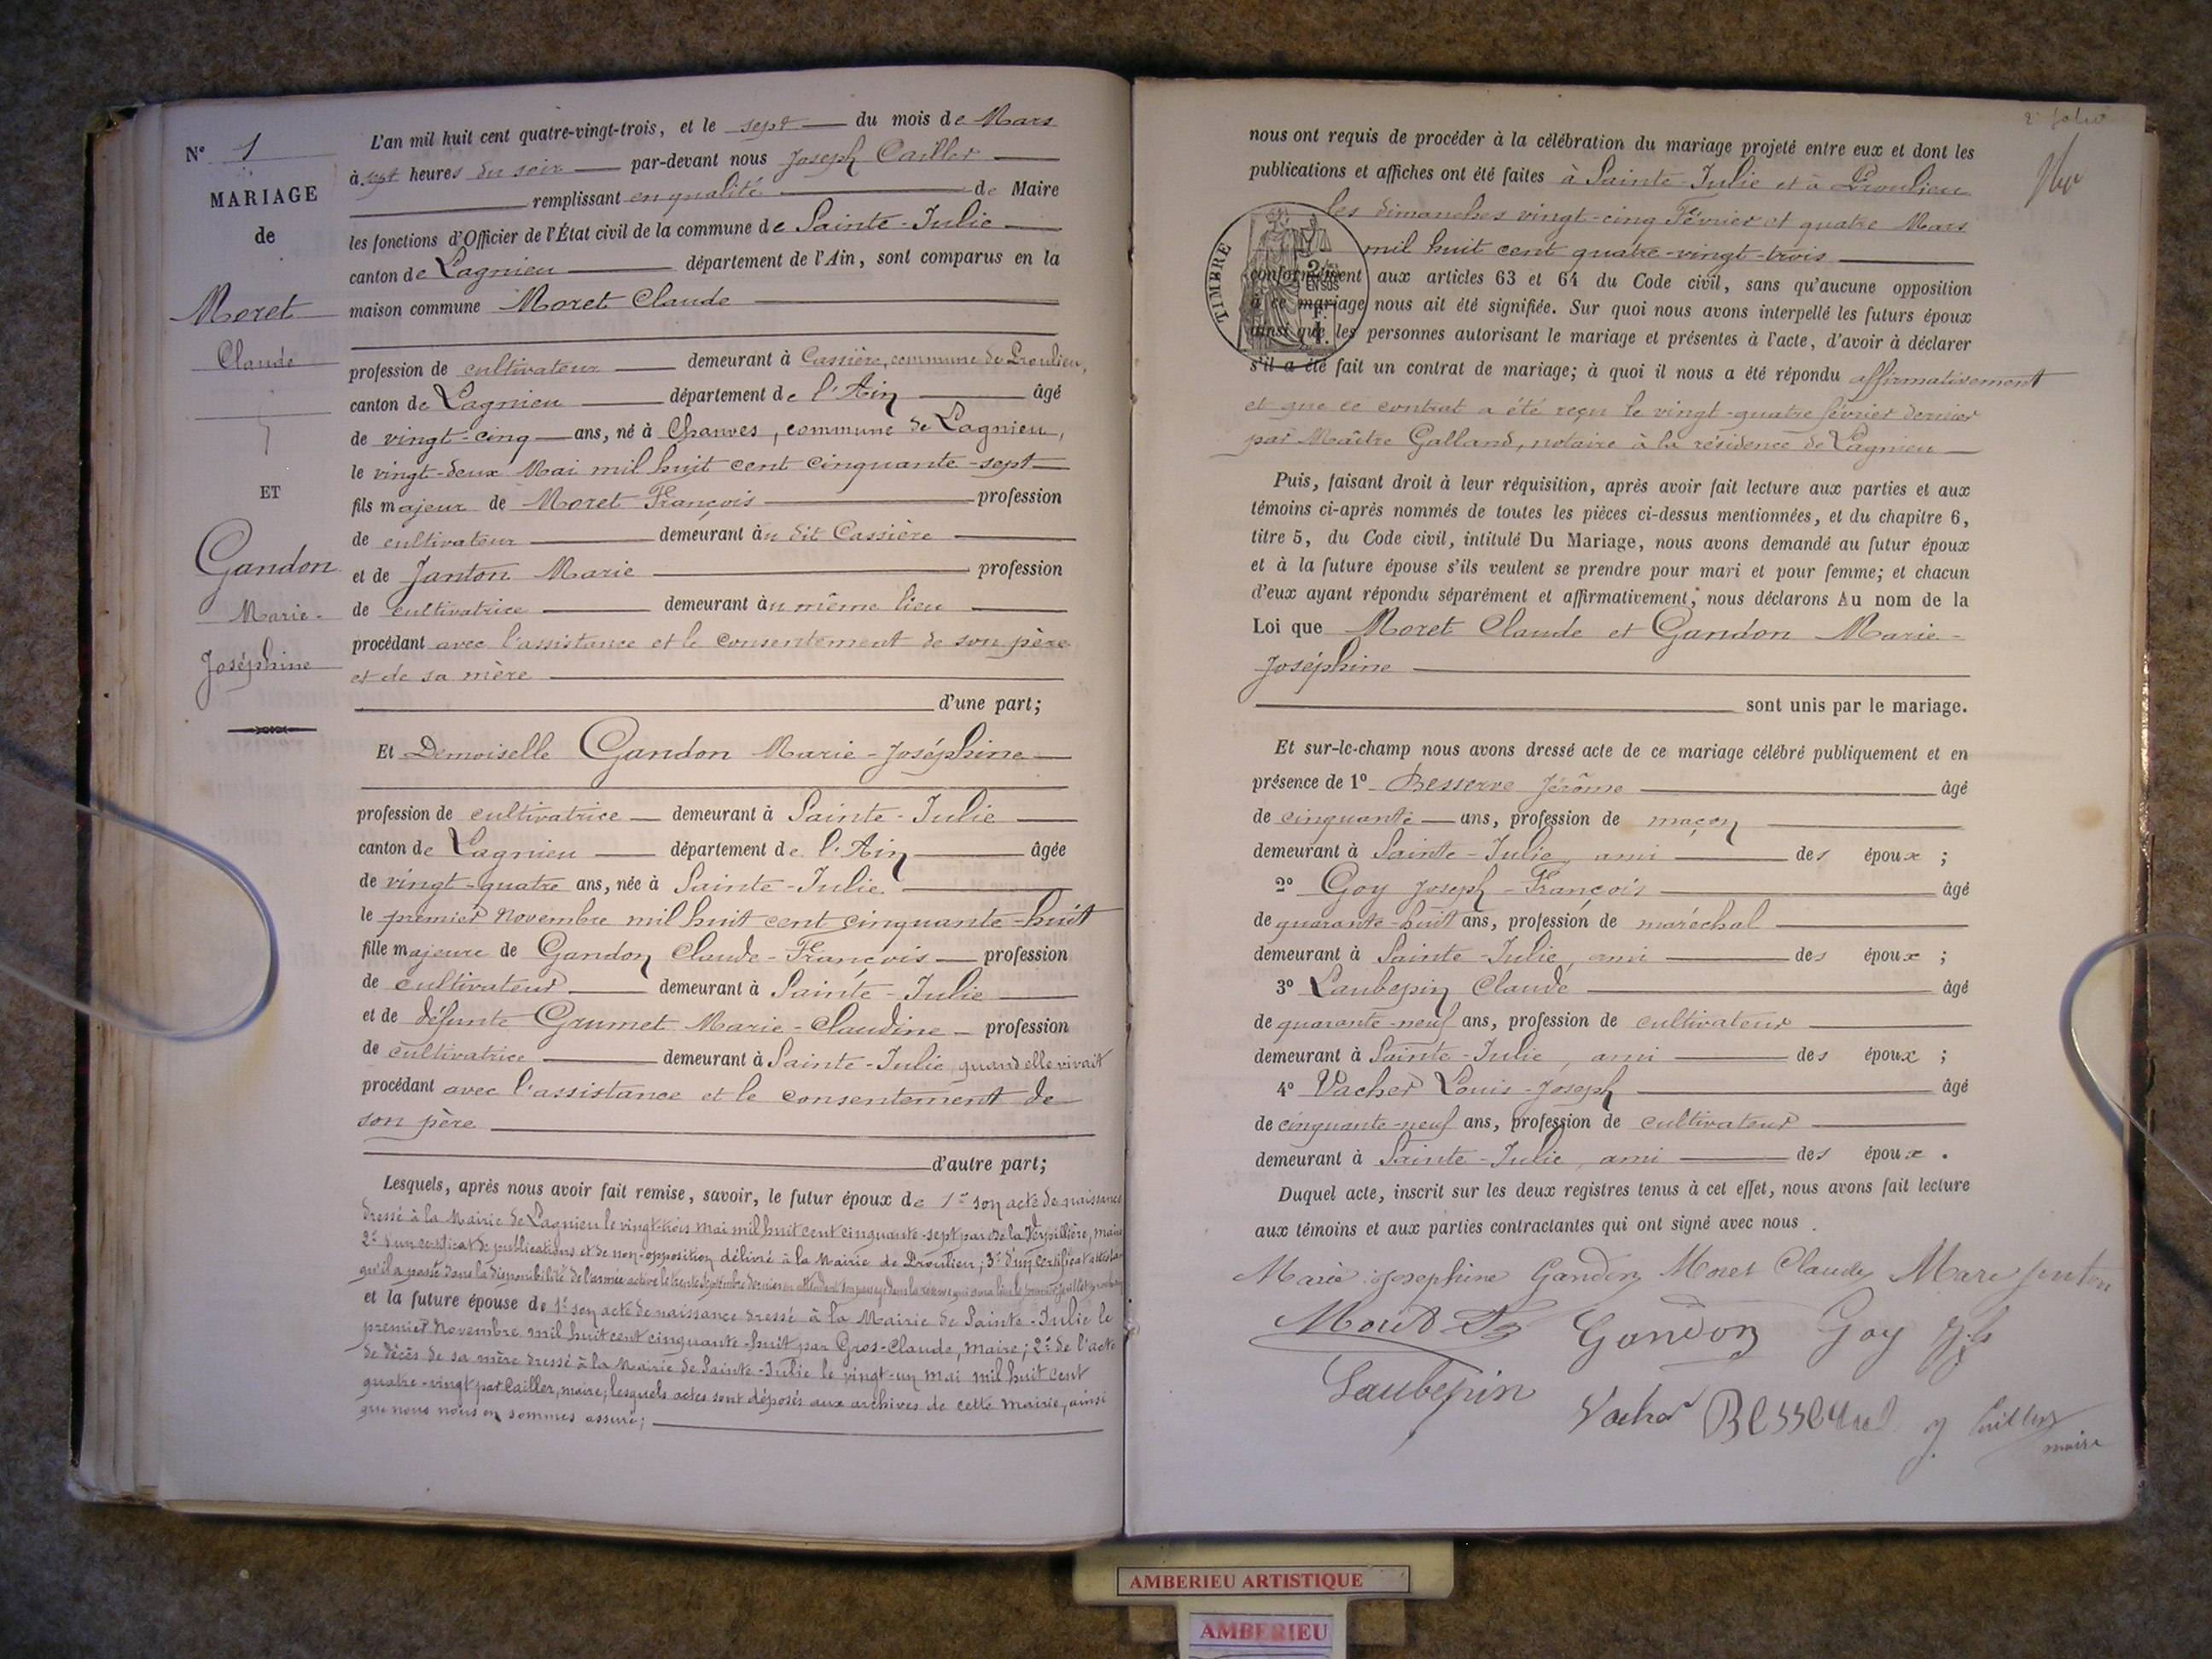 N° 1
MARIAGE
de
Moret
Claude
ET
Gandon
Marie-
Joséphine
L'an mil huit cent quatre-vingt-trois, et le sept du mois de Mars
à sept heures du soir par-devant nous Joseph Cailler
remplissant en qualité de Maire
les fonctions d'Officier de l'État civil de la commune de Sainte-Julie
canton de Lagnieu département de l'Ain, sont comparus en la
maison commune Moret Claude
profession de cultivateur demeurant à Cassière, commune de Proulieu,
canton de Lagnieu département de l'Ain âgé
de vingt-cinq ans, né à Chanves, commune de Lagnieu,
le vingt-deux Mai mil huit cent cinquante-sept
fils majeur de Moret François profession
de cultivateur demeurant àu dit Cassière
et de Janton Marie profession
de cultivatrice demeurant àu même lieu
procédant avec l'assistance et le consentement de son père
et de sa mère
d'une part;
Et Demoiselle Gandon Marie-Joséphine
profession de cultivatrice demeurant à Sainte-Julie
canton de Lagnieu département de l'Ain âgée
de vingt-quatre ans, née à Sainte-Julie
le premier Novembre mil huit cent cinquante-huit
fille majeure de Gandon Claude-François profession
de cultivateur demeurant à Sainte-Julie
et de défunte Grumet Marie-Claudine profession
de cultivatrice demeurant à Sainte-Julie, quand elle vivait
procédant avec l'assistance et le consentement de
son père
d'autre part;
Lesquels, après nous avoir fait remise, savoir, le futur époux de 1° son acte de naissance
dressé à la Mairie de Lagnieu le vingt-trois mai mil huit cent cinquante-sept par de la Verpillière, maire
2° d'un certificat de publications et de non-opposition délivré à la Mairie de Proulieu; 3° d'un certificat attestant
qu'il a passé dans la disponibilité de l'armée active le trente Septembre dernier en attendant son passage dans la réserve qui aura lieu le premier Juillet prochain
et la future épouse de 1° son acte de naissance dressé à la Mairie de Sainte-Julie le
premier Novembre mil huit cent cinquante-huit par Gros-Claude, Maire; 2° de l'acte
de décès de sa mère dressé à la Mairie de Sainte-Julie le vingt-un mai mil huit cent
quatre-vingt par Cailler, maire; lesquels actes sont déposés aux archives de cette Mairie, ainsi
que nous nous en sommes assuré;
2e folio
nous ont requis de procéder à la célébration du mariage projeté entre eux et dont les
publications et affiches ont été faites à Sainte-Julie et à Proulieu
les dimanches vingt-cinq Février et quatre Mars
mil huit cent quatre-vingt-trois
TIMBRE
2/10 EN SUS
conformément aux articles 63 et 64 du Code civil, sans qu'aucune opposition
à ce mariage nous ait été signifiée. Sur quoi nous avons interpellé les futurs époux
ainsi que les personnes autorisant le mariage et présentes à l'acte, d'avoir à déclarer
s'il a été fait un contrat de mariage; à quoi il nous a été répondu affirmativement
et que ce contrat a été reçu le vingt-quatre février dernier
par Maître Galland, notaire à la résidence de Lagnieu
Puis, faisant droit à leur réquisition, après avoir fait lecture aux parties et aux
témoins ci-après nommés de toutes les pièces ci-dessus mentionnées, et du chapitre 6,
titre 5, du Code civil, intitulé Du Mariage, nous avons demandé au futur époux
et à la future épouse s'ils veulent se prendre pour mari et pour femme; et chacun
d'eux ayant répondu séparément et affirmativement, nous déclarons Au nom de la
Loi que Moret Claude et Gandon Marie-
Joséphine
sont unis par le mariage.
Et sur-le-champ nous avons dressé acte de ce mariage célébré publiquement et en
présence de 1° Besserve Jérôme âgé
de cinquante ans, profession de maçon
demeurant à Sainte-Julie, ami des époux ;
2° Goy Joseph-François âgé
de quarante-huit ans, profession de maréchal
demeurant à Sainte-Julie, ami des époux ;
3° Laubepin Claude âgé
de quarante-neuf ans, profession de cultivateur
demeurant à Sainte-Julie, ami des époux ;
4° Vacher Louis-Joseph âgé
de cinquante-neuf ans, profession de cultivateur
demeurant à Sainte-Julie, ami des époux .
Duquel acte, inscrit sur les deux registres tenus à cet effet, nous avons fait lecture
aux témoins et aux parties contractantes qui ont signé avec nous .
Marie Josephine Gandon Moret Claude Marie Janton
Moret Gandon Goy
Laubepin
Vacher Besserve J Cailler
maire
AMBERIEU ARTISTIQUE
AMBERIEU